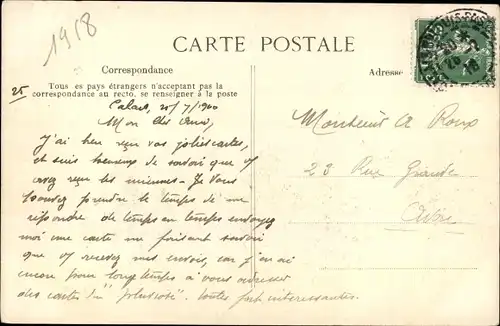 1918
CARTE POSTALE
Correspondance
Adresse
25
Tous es pays étrangers n'acceptant pas la
correspondance au recto, se renseigner à la poste
25/7/1900
Mon cher Ami,
J'ai bien reçu vos jolies cartes,
et suis heureux de savoir que v/
avez reçu les miennes - Je vous
prendre le temps de me
répondre de temps en temps envoyez
moi une carte me faisant savoir
que v/ recevez mes envois, car j'en ai
encore pour longtemps à vous adresser
des cartes toutes fort intéressantes.
Monsieur A Roux
23 Rue Grande